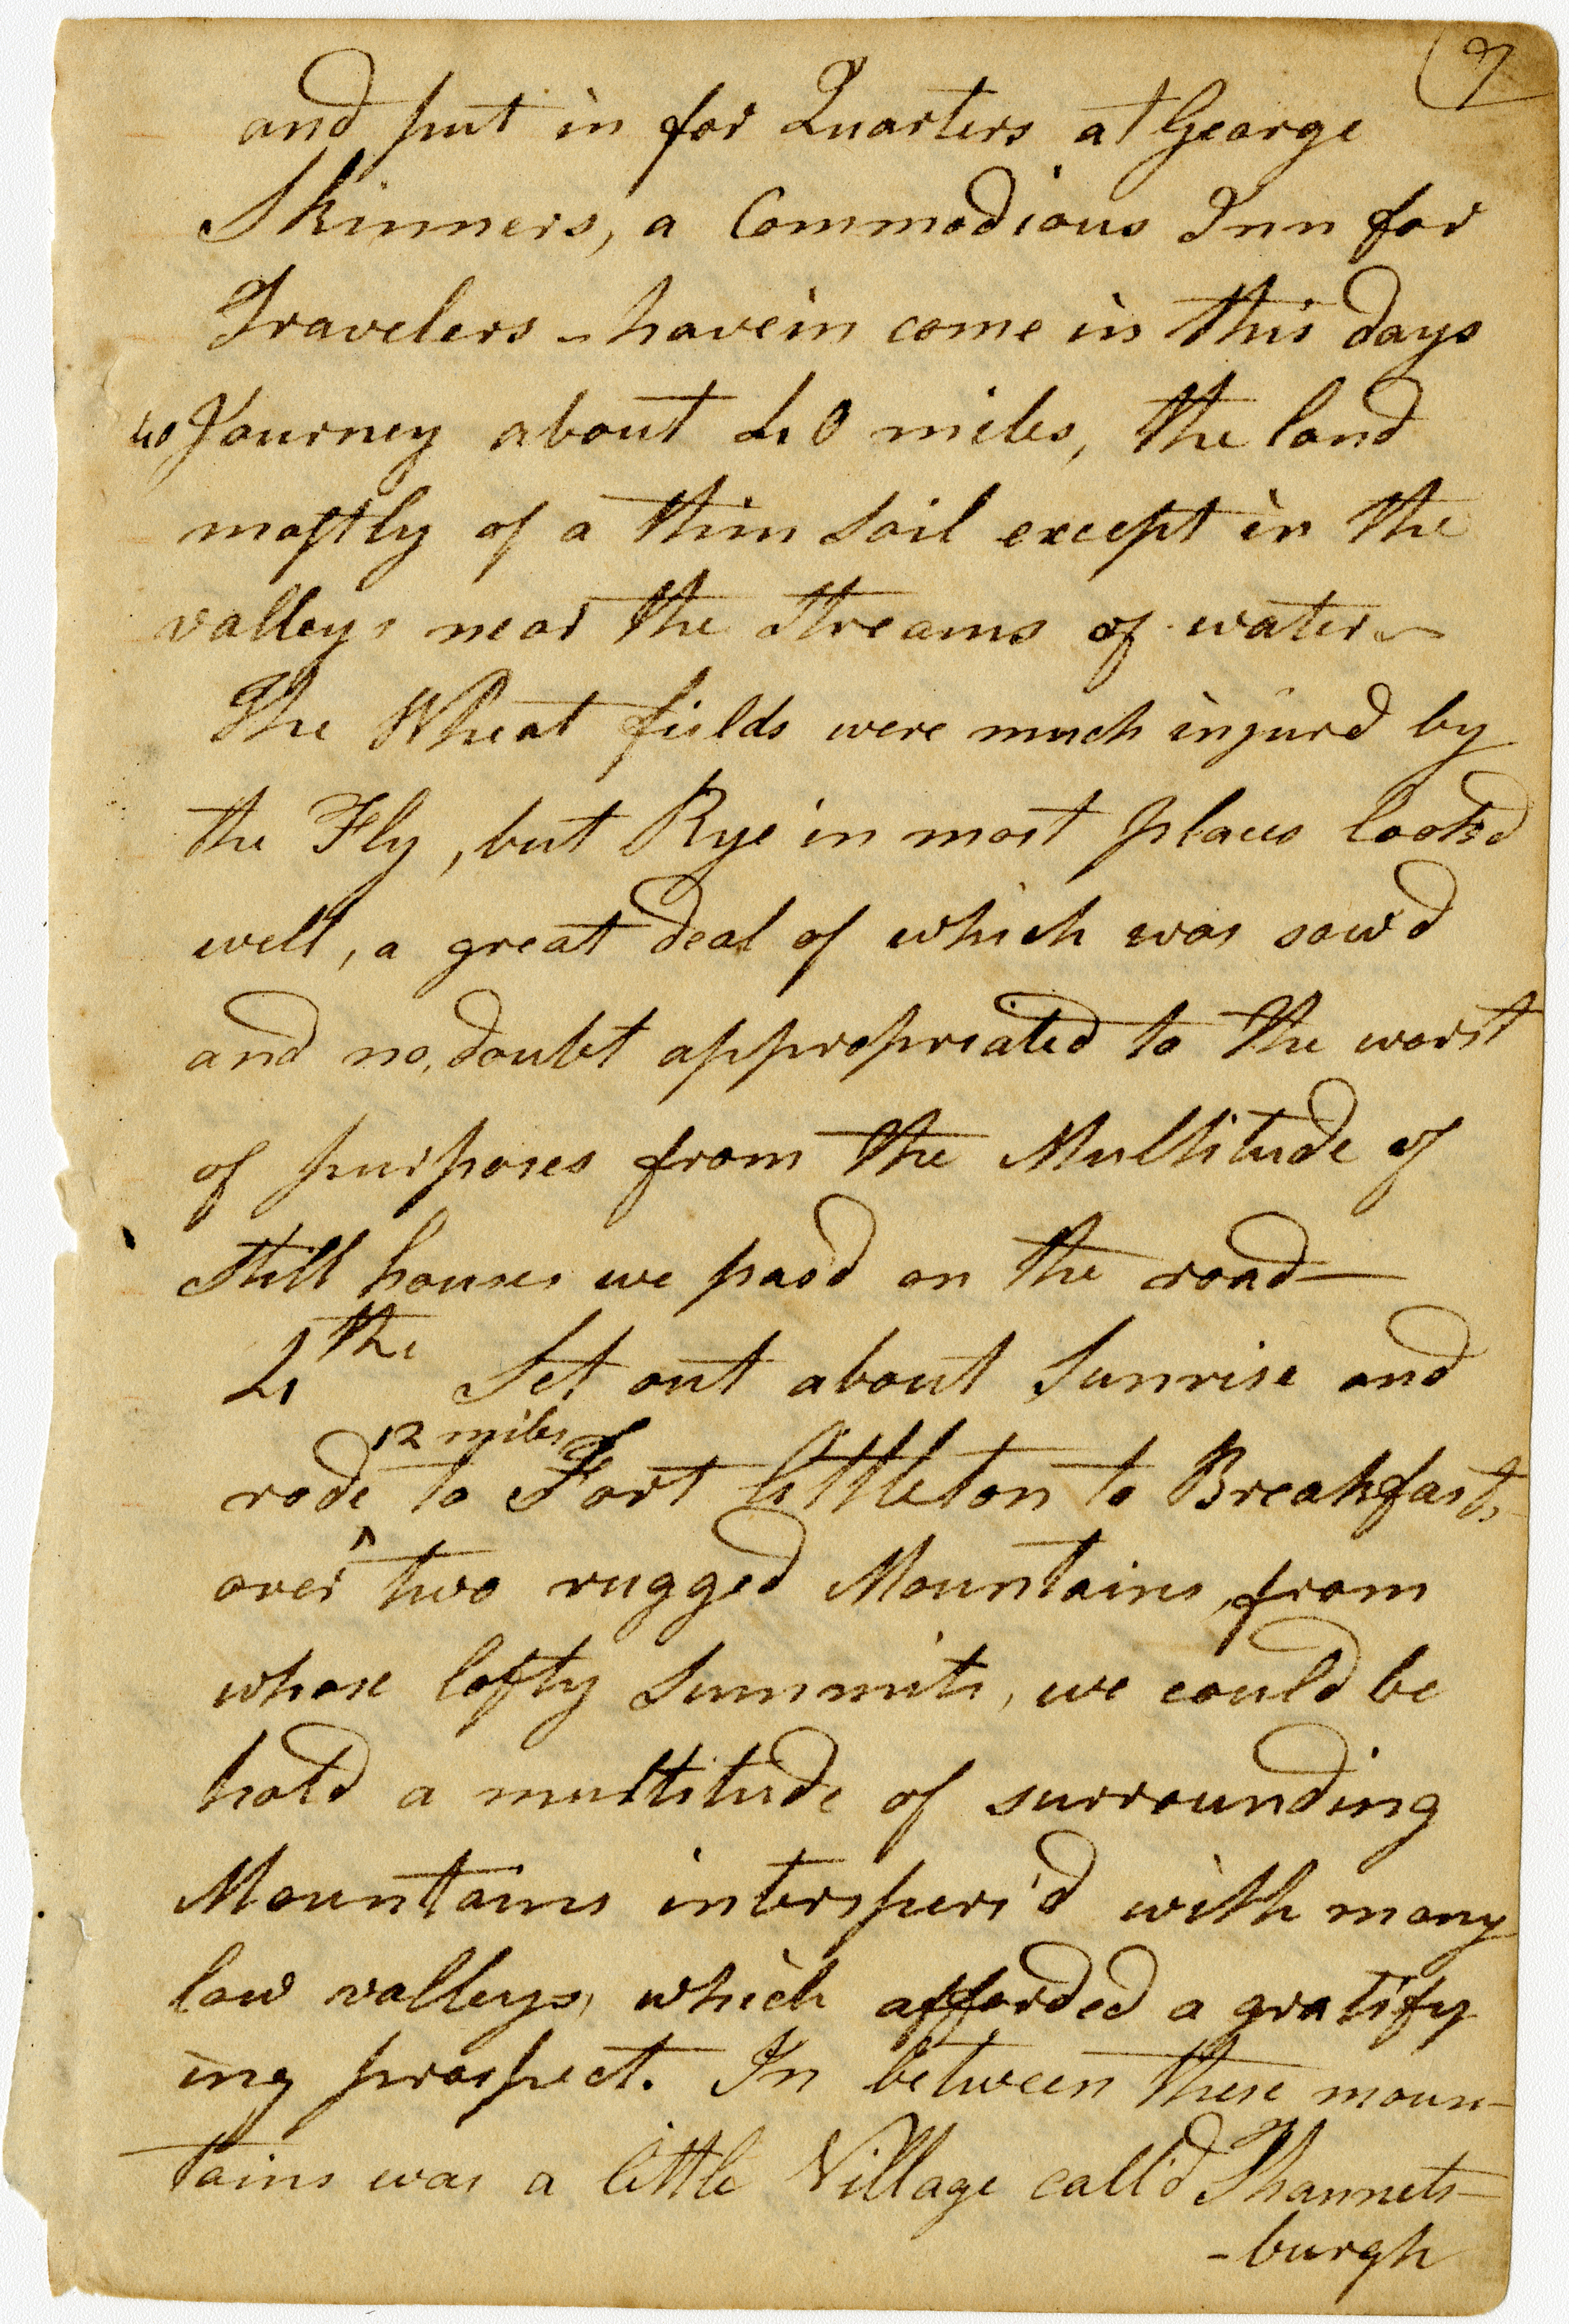 7
and put in for Quarters at George
Skinners, a Commodious Inn for
Travelers - havein come in this days
40 Journey about 40 miles, the land
mostly of a thin soil except in the
valleys near the Streams of water -
The Wheat fields were much injurd by
the Fly, but Rye in most places look'd
well, a great deal of which was sow'd
and no doubt appropriated to the worst
of purposes from the Multitude of
Still houses we pasd on the road -
4th Set out about Sunrise and
12 miles
rode ^ to Fort Littleton to Breakfast,
over two rugged Mountains, from
whose lofty Summits, we could be
hold a multitude of surrounding
Mountains interspers'd with many
low valleys, which afforded a gratify
ing prospect. In between these moun-
tains was a little Village call'd Thannets-
-burgh